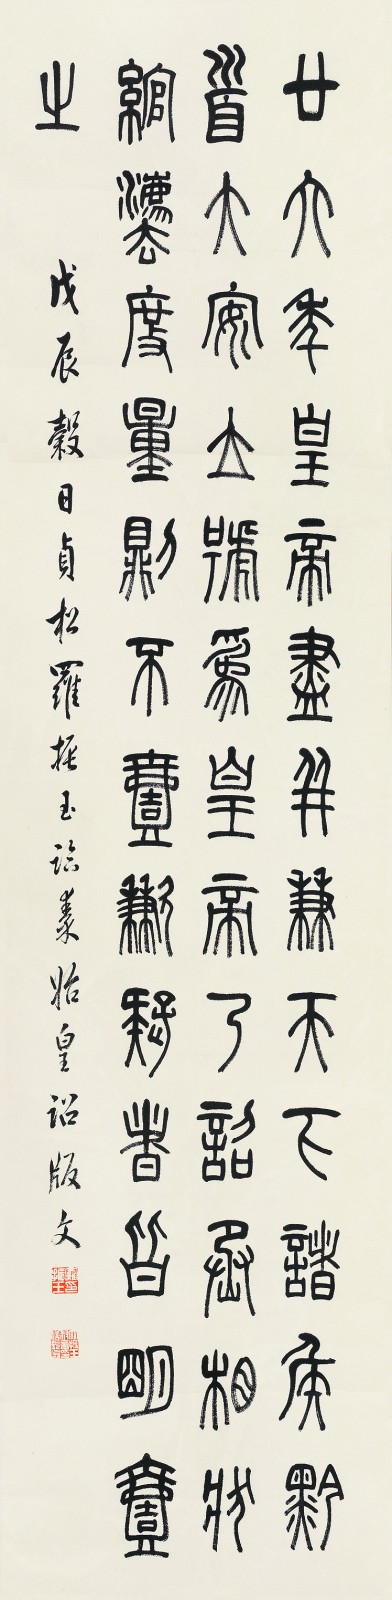 廿六年皇帝盡并兼天下諸侯黔
首大安立號爲皇帝乃詔丞相狀
綰灋度量則不壹歉疑者皆明壹
之
戊辰穀日貞松羅振玉臨秦始皇詔版文